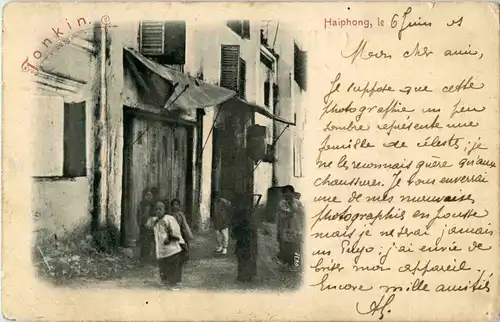 Tonkin.
Haiphong, le 6 Juin 01
Mon cher ami,
Je suppose que cette
photographie un peu
sombre représente une
famille de célests; je
ne les reconnais guère qu'aux
chaussures. Je vous enverrai
une de mes mauvaises
photographies en pousse
mais je ne serai jamais
un j'ai envie de
briser mon appareil.
Encore mille amitiés